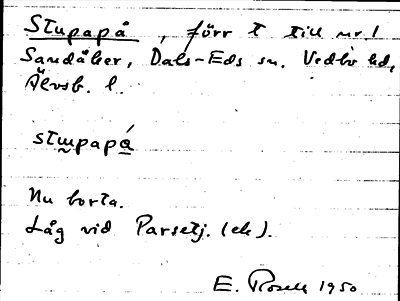 Stupapå, förr t till nr. 1
Sandåker, Dals-Eds sn. Vedbo hd,
Älvsb. l.
stupapá
Nu borta.
Låg vid Parsetj. (ek).
E. Rosell 1950